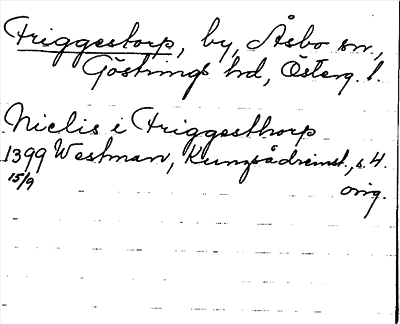 Friggestorp, by, Åsbo sn.,
Göstrings hd, Österg. l.
Niclis i Friggesthorp
1399 Westman, Kungsådreinst., s. 4.
15/9 orig.